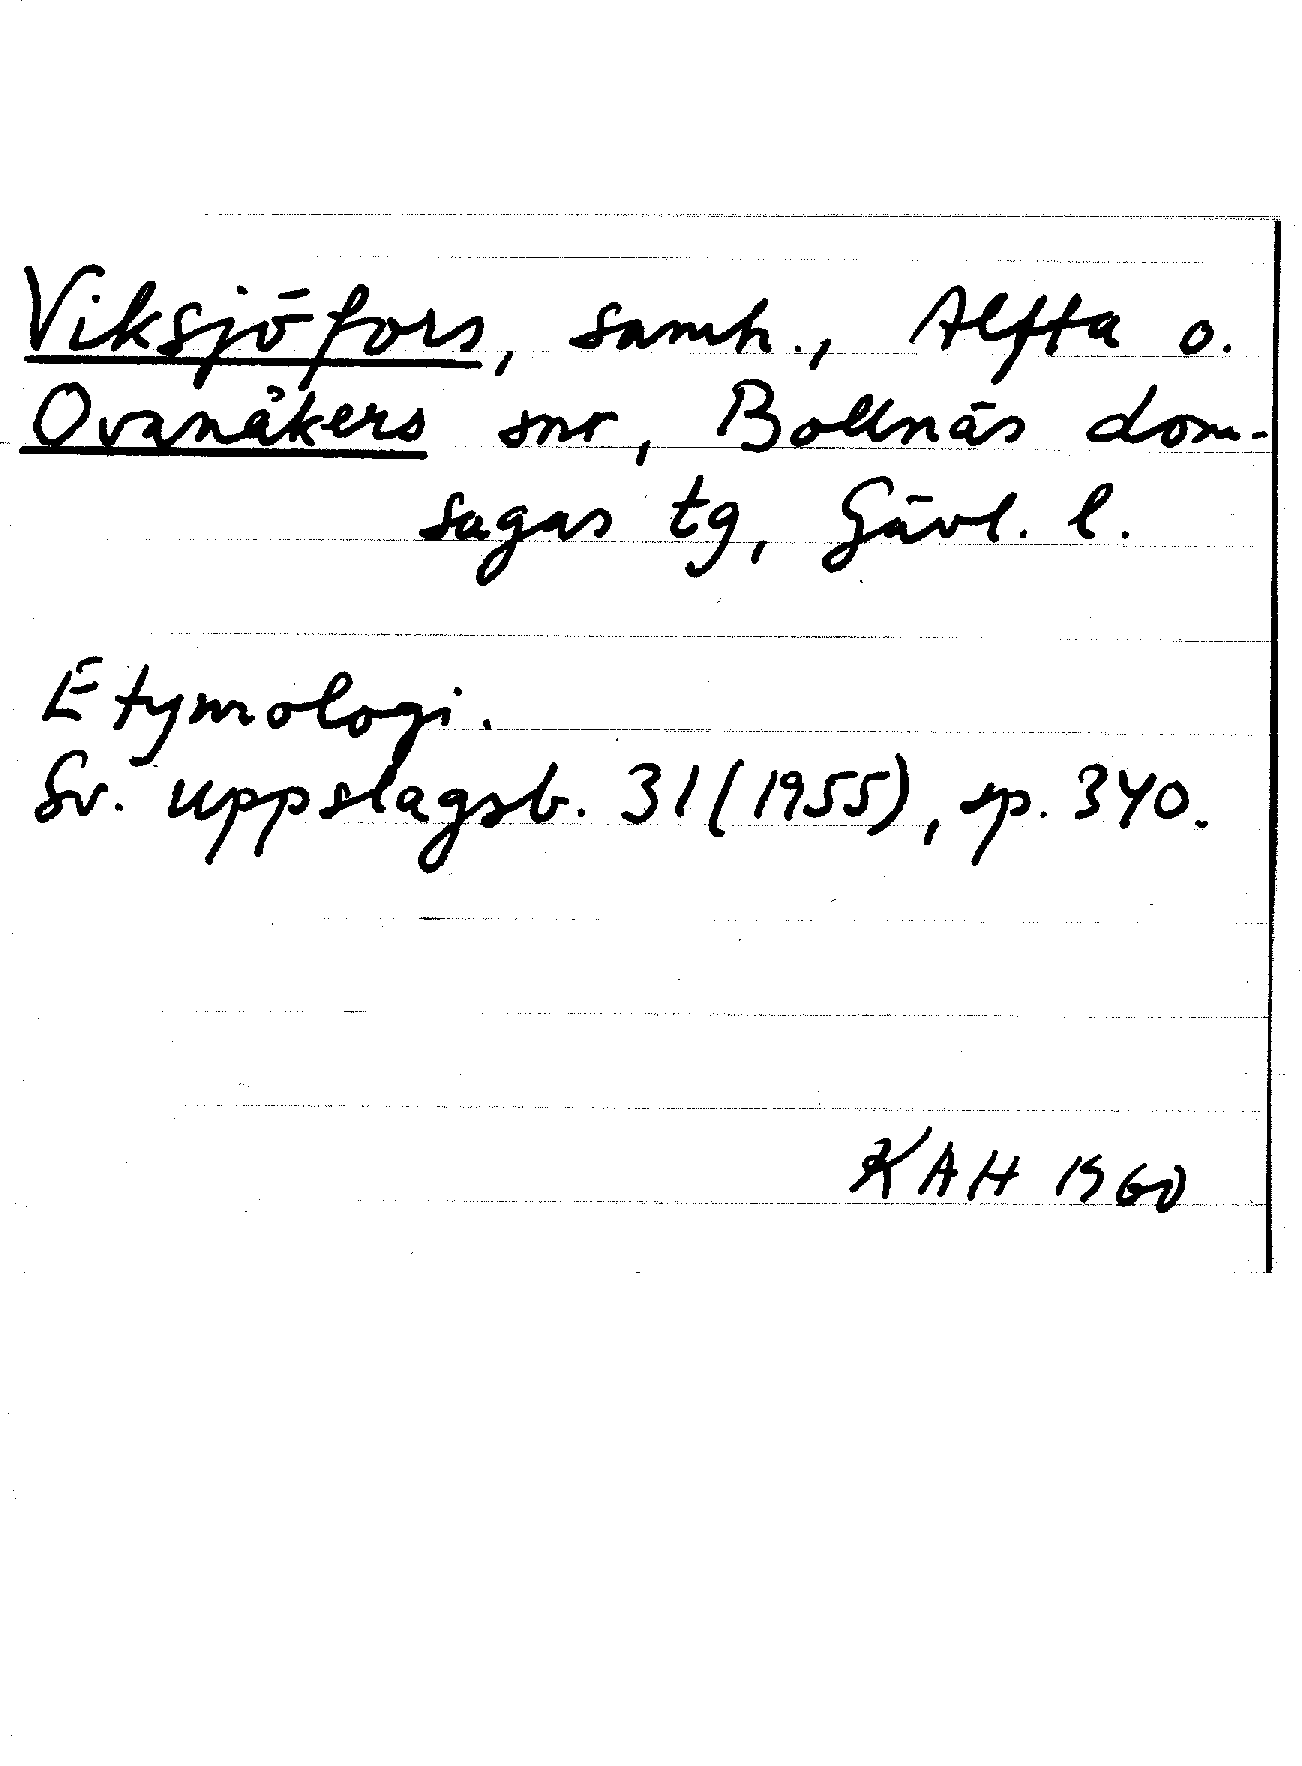 Viksjöfors, samh., Alfta o.
Ovanåkers snr, Bollnäs dom-
sagas tg, Gävl. l.
Etymologi.
Sv. uppslagsb. 31 (1955), sp. 340.
KAH 1960